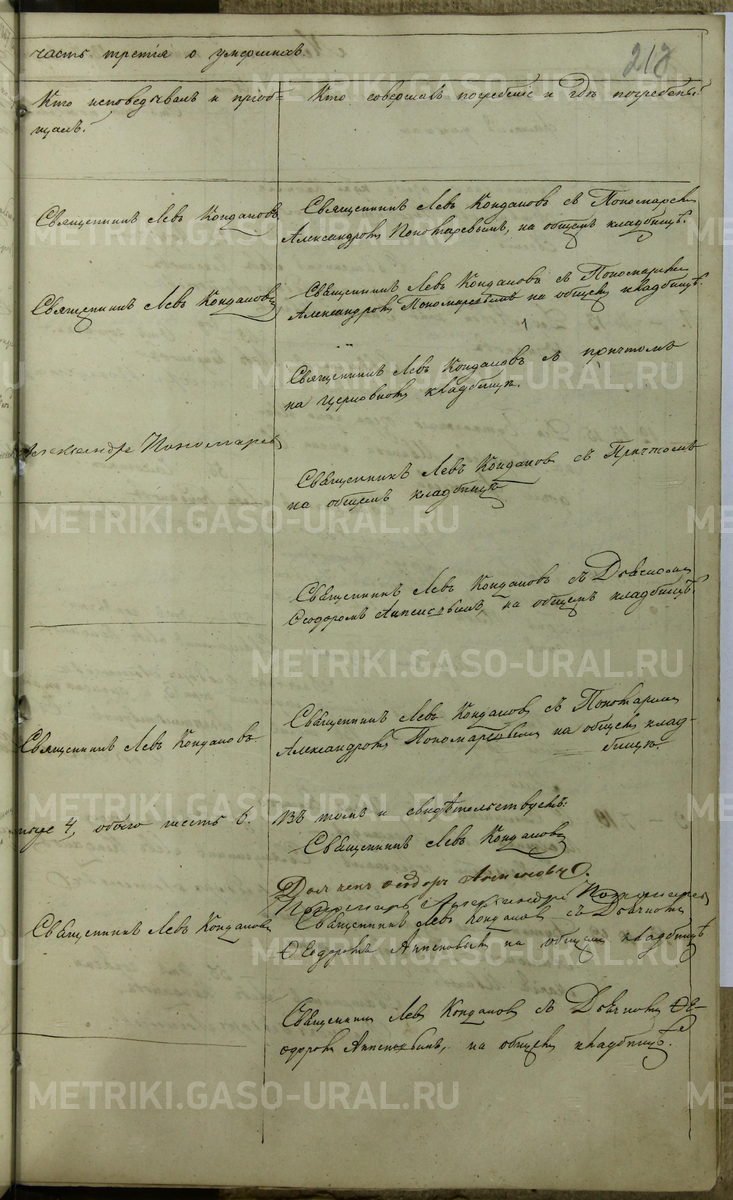 часть третія о умершихъ
218
Кто исповедывалъ и пріоб-
щалъ.
Кто совершалъ погребеніе и гдѣ погребены
Священникъ Левъ Кондаковъ
Священникъ Левъ Кондаковъ съ Пономаремъ
Александромъ Пономаревымъ, на общемъ кладбищѣ.
Священникъ Левъ Кондаковъ
Священникъ Левъ Кондаковъ съ Пономаремъ
Александромъ Пономаревымъ на общемъ кладбищѣ.
Священникъ Левъ Кондаковъ съ причтомъ
на церковномъ кладбищѣ.
Александръ Пономаревъ
Священникъ Левъ Кондаковъ съ Причтомъ
на общемъ кладбищѣ
Священникъ Левъ Кондаковъ съ Дьячкомъ
Ѳеодоромъ на общемъ кладбищѣ.
Священникъ Левъ Кондаковъ.
Священникъ Левъ Кондаковъ съ Пономаремъ
Александромъ Пономаревымъ на общемъ клад-
бищѣ.
4, обоего шесть 6.
Въ томъ и свидѣтельствуемъ:
Священникъ Левъ Кондаковъ
Дьячекъ Ѳеодоръ
Пономарь Александръ Пономаревъ
Священникъ Левъ Кондаковъ
Священникъ Левъ Кондаковъ съ Дьячкомъ
Ѳеодоромъ на общемъ кладбищѣ
Священникъ Левъ Кондаковъ съ Дьячкомъ Ѳе-
одоромъ на общемъ кладбищѣ.
METRIKI.GASO-URAL.RU